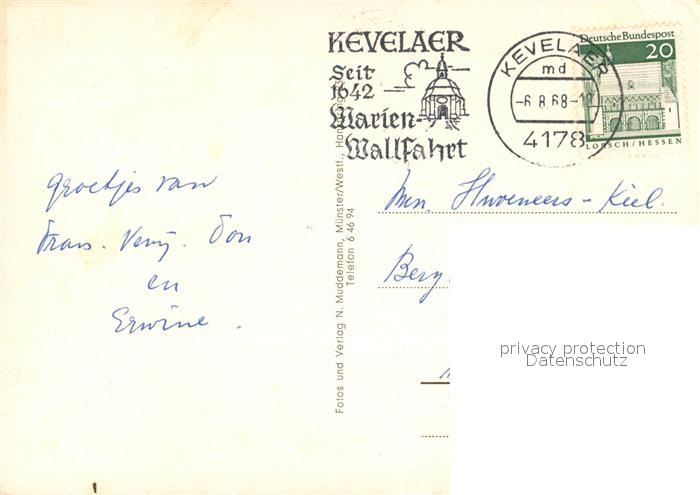 KEVELAER
Seit
1642
Marien-
Wallfahrt
KEVELAER
md
-6.8.68-
4178
Deutsche Bundespost
20
LORSCH/HESSEN
groetjes van
Frans. Ton
en
Erwine.
Fotos und Verlag N. Muddemann, Münster/Westf.,
Telefon 6 46 94
Huveneers - Kiel.
Berg
privacy protection
Datenschutz